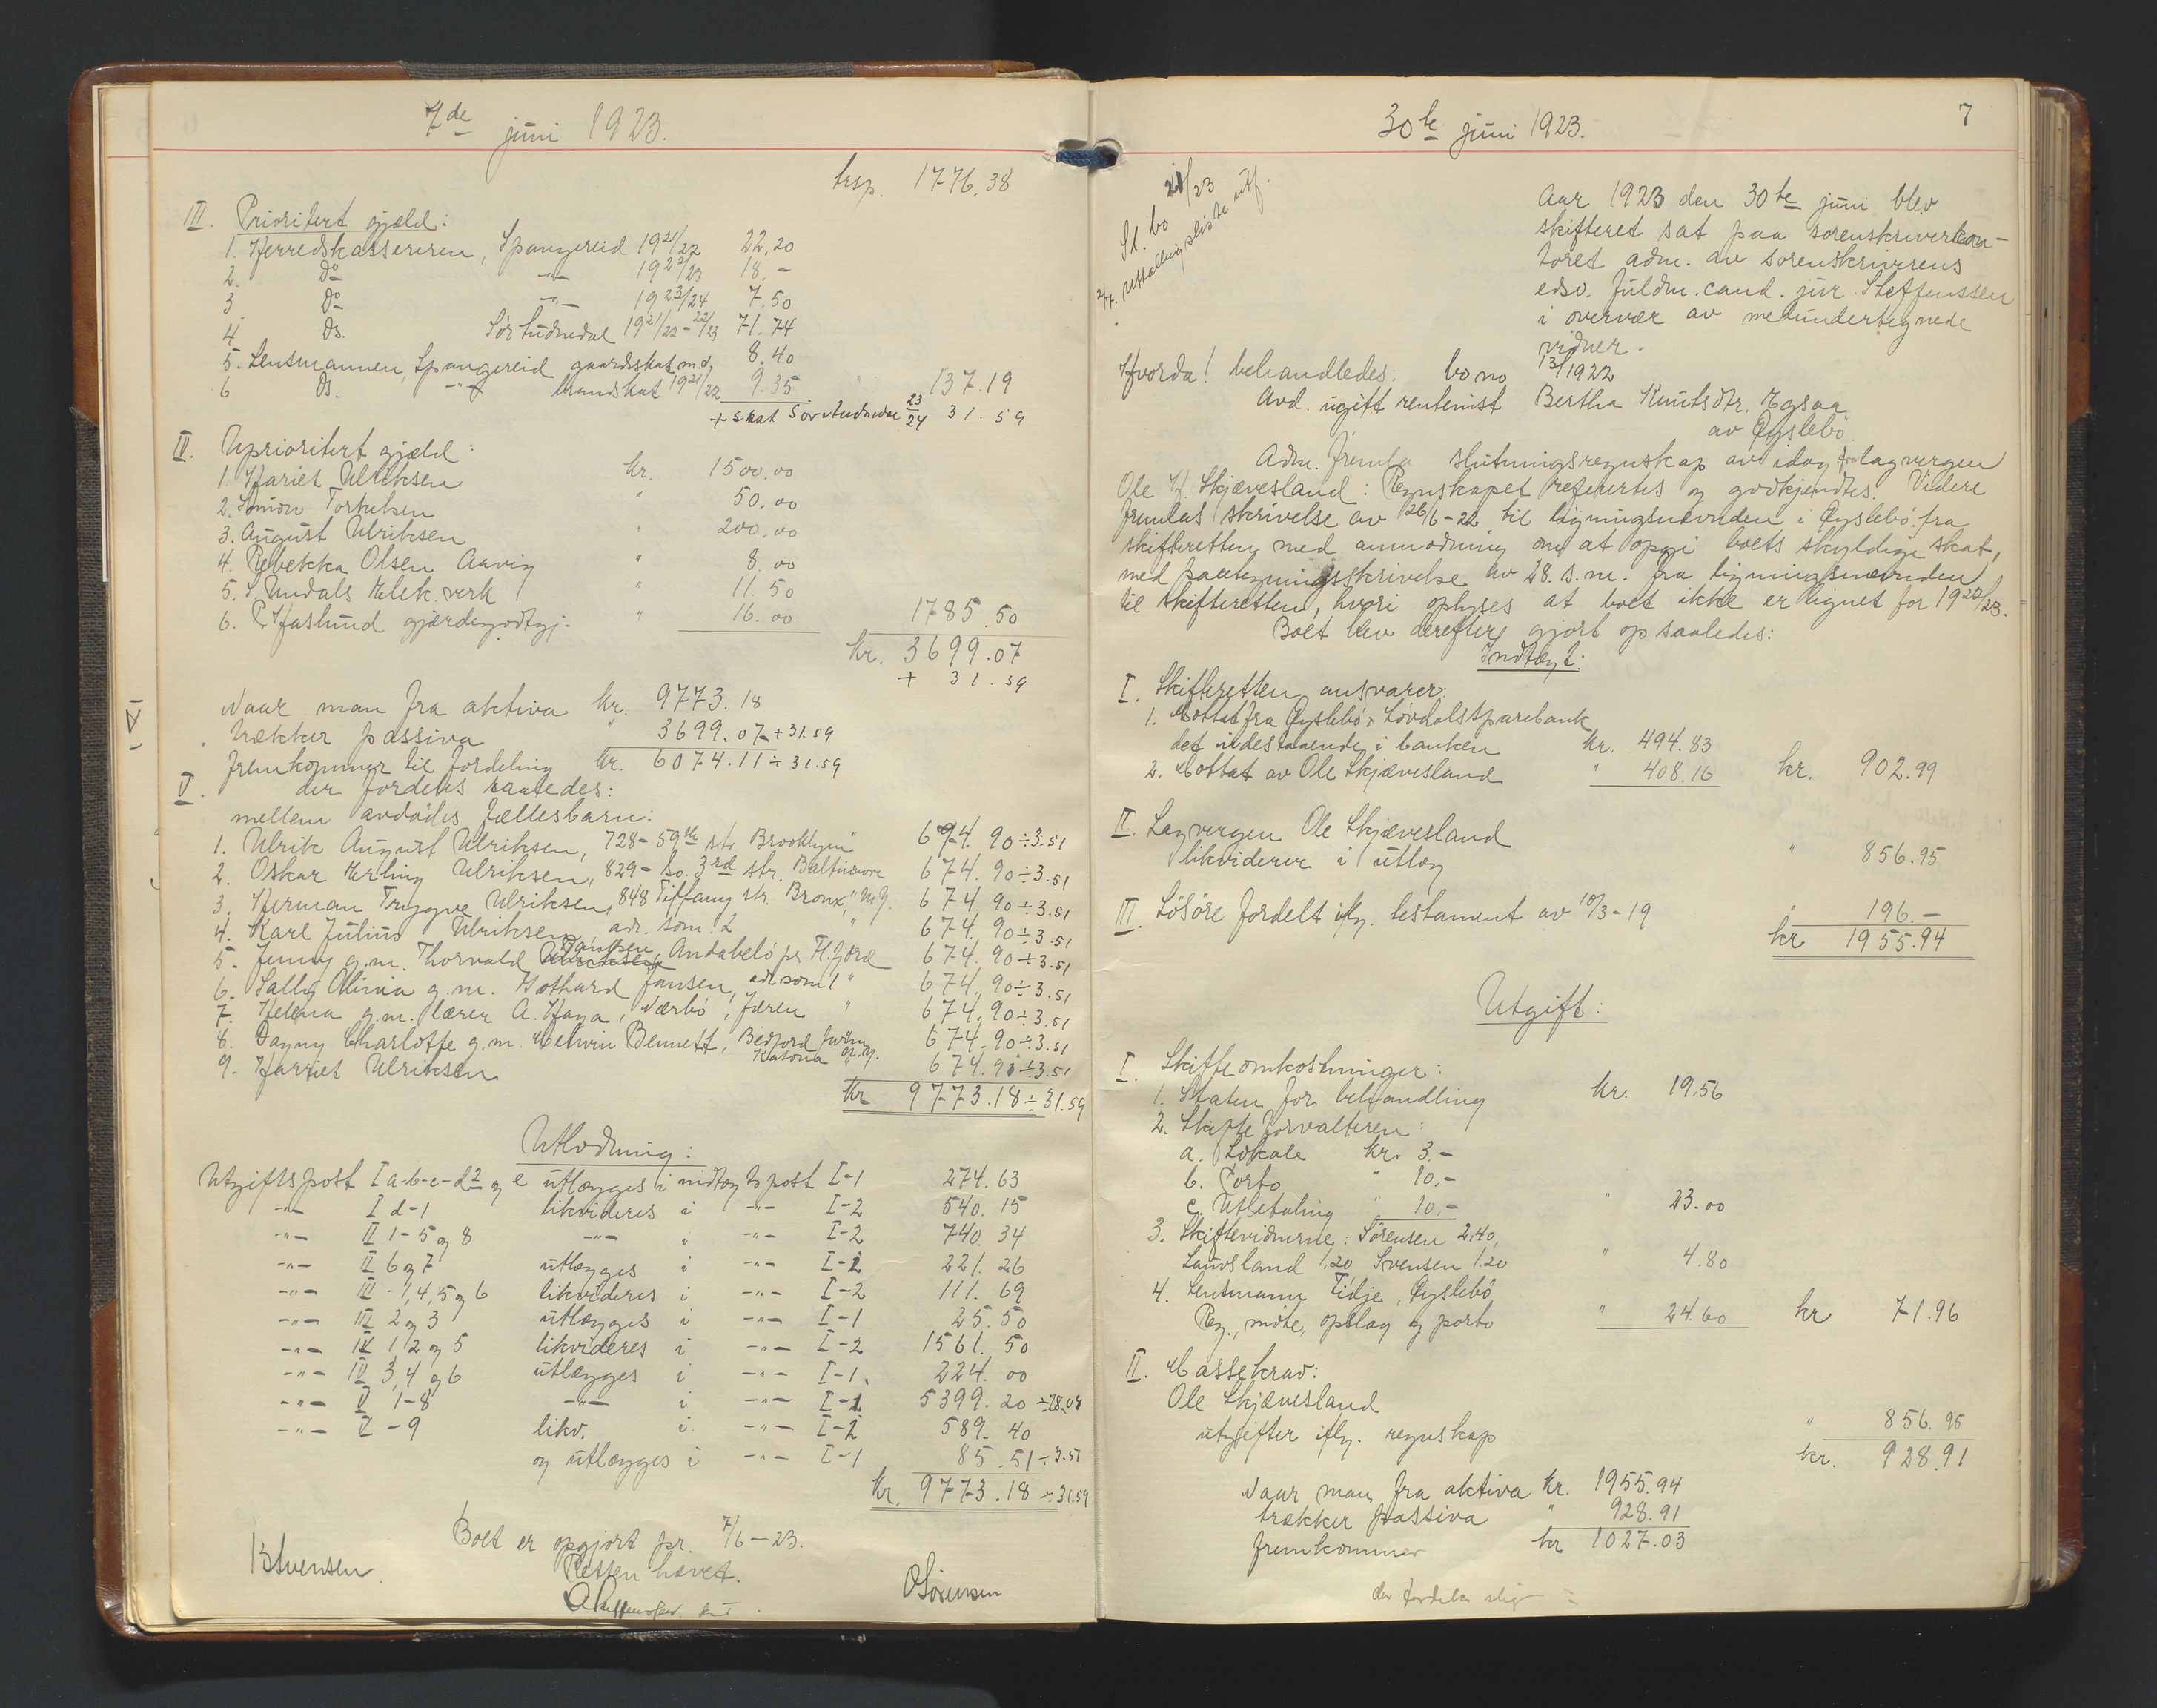 7de juni 1923.
tesp. 1776.38
III. Prioritert gjæld:
1. Herredskassereren, Spangereid 1921/22 22,20
2. Do -"- 1922/23 18,-
3 Do -"- 1923/24 7.50
4 Ds. Sør Audnedal 1921/22-22/23 71.74
5. Lensmannen, Spangereid gaardsskat m.d. 8.40
6 Ds. -"- brandskat 1921/22 9.35 137.19
+ skat Sør Audnedal 23/24 31.59
IV. Uprioritert gjæld:
1. Hariet Ulriksen kr. 1500.00
2. Simon Torkelsen " 50.00
3. August Ulriksen " 200.00
4. Rebekka Olsen Aavig " 8.00
5. S. Undals Elek. verk " 11.50
6. P. Haslund gjærdegodtgj. " 16.00 1785.50
kr. 3699.07
+ 31.59
Naar man fra aktiva kr. 9773.18
trækker passiva " 3699.07 + 31.59
fremkommer til fordeling kr. 6074.11 ÷ 31.59
V. der fordeles saaledes:
mellem avdødes fællesbarn:
1. Ulrik August Ulriksen, 728-59th str. Brooklyn " 674.90 ÷ 3.51
2. Oskar Erling Ulriksen, 829- So. 3rd str. Baltimore 674.90 ÷ 3.51
3. Herman Trygve Ulriksen, 848 Tiffany str. Bronx, N.Y. 674.90 ÷ 3.51
4. Karl Julius Ulriksen, adr. som 2 " 674.90 ÷ 3.51
5. Jenny g.m. Thorvald Paulsen, Andabelö pr. Fl.fjord 674.90 ÷ 3.51
6. Sally Olivia g.m. Gothard Jansen, adr som 1 " 674.90 ÷ 3.51
7. Helena g.m. lærer A. Haga, Nærbö, Jæren " 674.90 ÷ 3.51
8. Dagny Charlotte g.m. Melwin Bennett, Bedford Katona N.Y. 674.90 ÷ 3.51
9. Harriet Ulriksen " 674.91 ÷ 3.51
kr 9773.18 ÷ 31.59
Utlodning:
Utgiftspost I a-b-c-d2 og e utlægges i indtægtspost I-1 274.63
-"- I d-1 likvideres i -"- I-2 540.15
-"- II 1-5 og 8 -"- i -"- I-2 740.34
-"- II 6 og 7 utlægges i -"- I-1 221.26
-"- III - 1,4,5 og 6 likvideres i -"- I-2 111.69
-"- III 2 og 3 utlægges i -"- I-1 25.50
-"- IV 1 2 og 5 likvideres i -"- I-2 1561.50
-"- IV 3,4 og 6 utlægges i -"- I-1. 224.00
-"- V 1-8 -"- i -"- I-1 5399.20 ÷ 28.08
-"- V - 9 likv. i. -"- I-2 589.40
og utlægges i -"- I-1 85.51 ÷ 3.51
kr. 9773.18 ÷ 31.59
Boet er opgjort pr. 7/6-23.
Retten hævet.
BSvensen. OSörensen
V
30te juni 1923. 7
Sl. bo 21/23
Utstillingsliste utf.
Aar 1923 den 30te juni blev
skifteret sat paa sorenskriverkon-
toret adm. av sorenskriverens
edsv. fuldm. cand. jur. Steffenssen
i overvær av medundertegnede
vidner.
Hvorda! behandledes: bo no 13/1922
Avd. ugift rentenist Bertha Knutsdtr. Egsaa
av Øyslebö.
Adm. fremla slutningsregnskap av idag fra lagvergen
Ole H. Skjævesland: Regnskapet refereertes og godkjendtes. Videre
fremlas skrivelse av 26/6-22 til ligningsnevnden i Øyslebö fra
skifteretten med anmodning om at opgi boets skyldige skat,
med paategningsskrivelse av 28. s.m. fra ligningsnævnden
til skifteretten, hvori oplyses at boet ikke er lignet for 1922/23.
Boet blev derefter gjort op saaledes:
Indtægt:
I. Skifteretten ansvarer:
1. Mottat fra Øyslebö & Løvdalsparebank
det indestaaende i banken kr. 494.83
2. Mottat av Ole Skjævesland " 408.16 kr. 902.99
II. Lagvergen Ole Skjævesland
likviderer i utlæg " 856.95
III. Løsöre fordelt iflg. testament av 10/3-19 " 196.-
kr 1955.94
Utgift:
I. Skifteomkostninger:
1. Staten for behandling kr. 19.56
2. Skifteforvalteren:
a. Lokale kr. 3.-
b. Porto " 10.-
c. Utbetaling " 10.- " 23.00
3. Skiftevidnerne: Sörensen 2,40,
Lauvsland 1.20 Svensen 1.20 " 4.80
4. Lensmann Tidje, Øyslebö
Reg., möte, opslag og porto " 24.60 kr 71.96
II. Massekrav:
Ole Skjævesland
utgifter iflg. regnskap " 856.95
kr. 928.91
Naar man fra aktiva kr. 1955.94
trækker passiva " 928.91
fremkommer kr 1027.03
der fordeles slig: